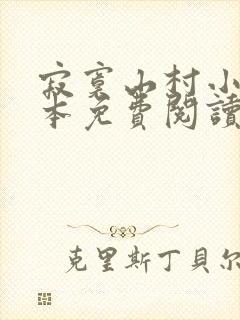 寂寞山村小
本免費閱讀
克里斯丁貝爾